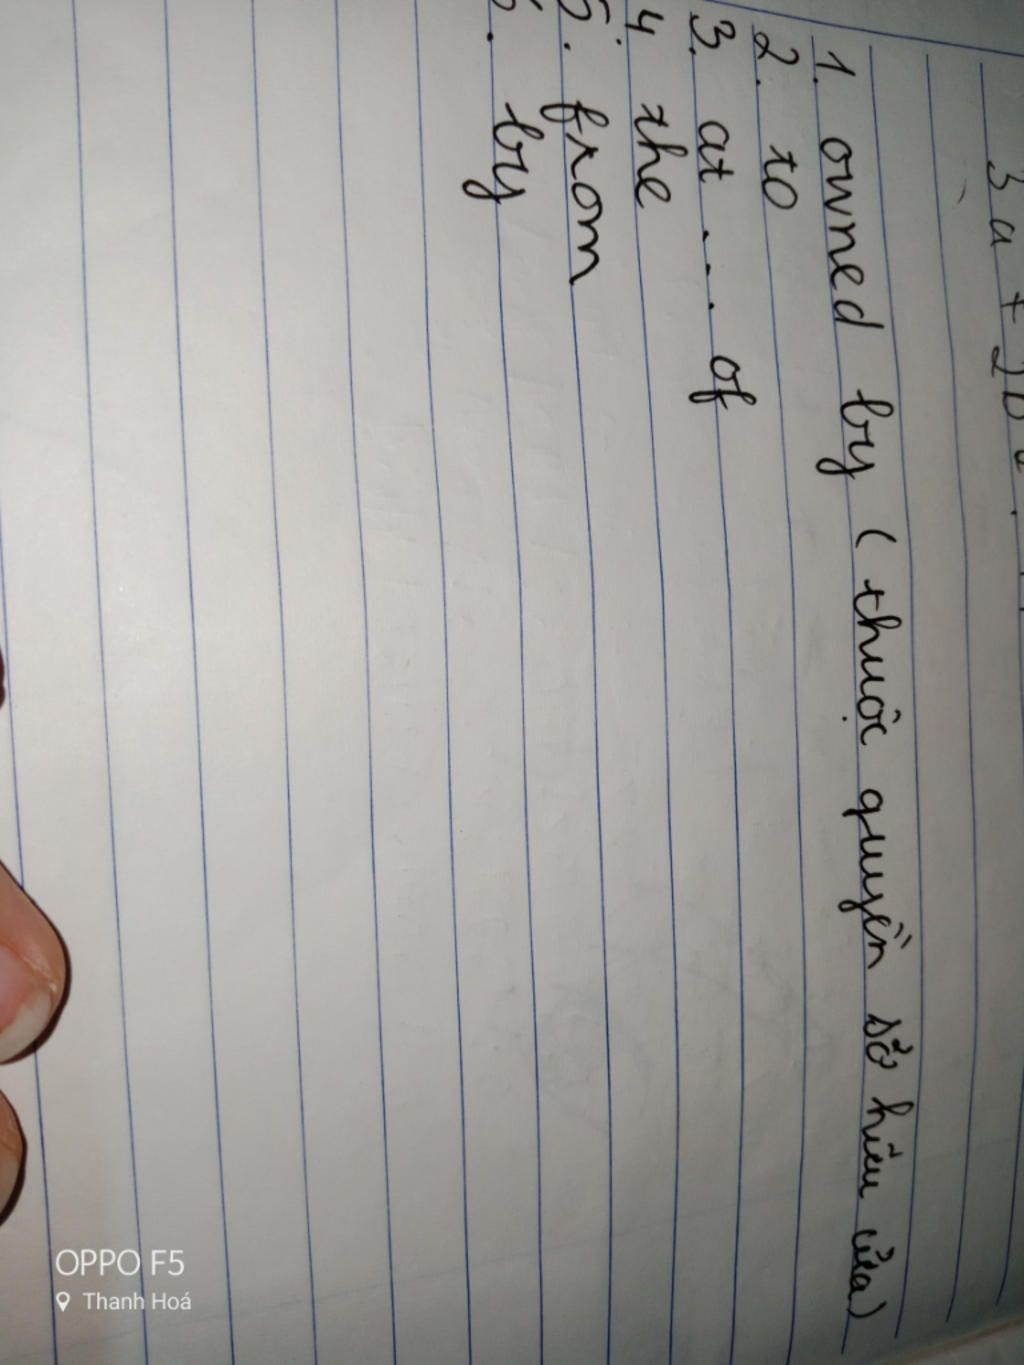 3a + 2b
1. owned by ( thuộc quyền sở hữu của)
2. to
3. at .... of
4. the
5. from
6. by
OPPO F5
Thanh Hoá